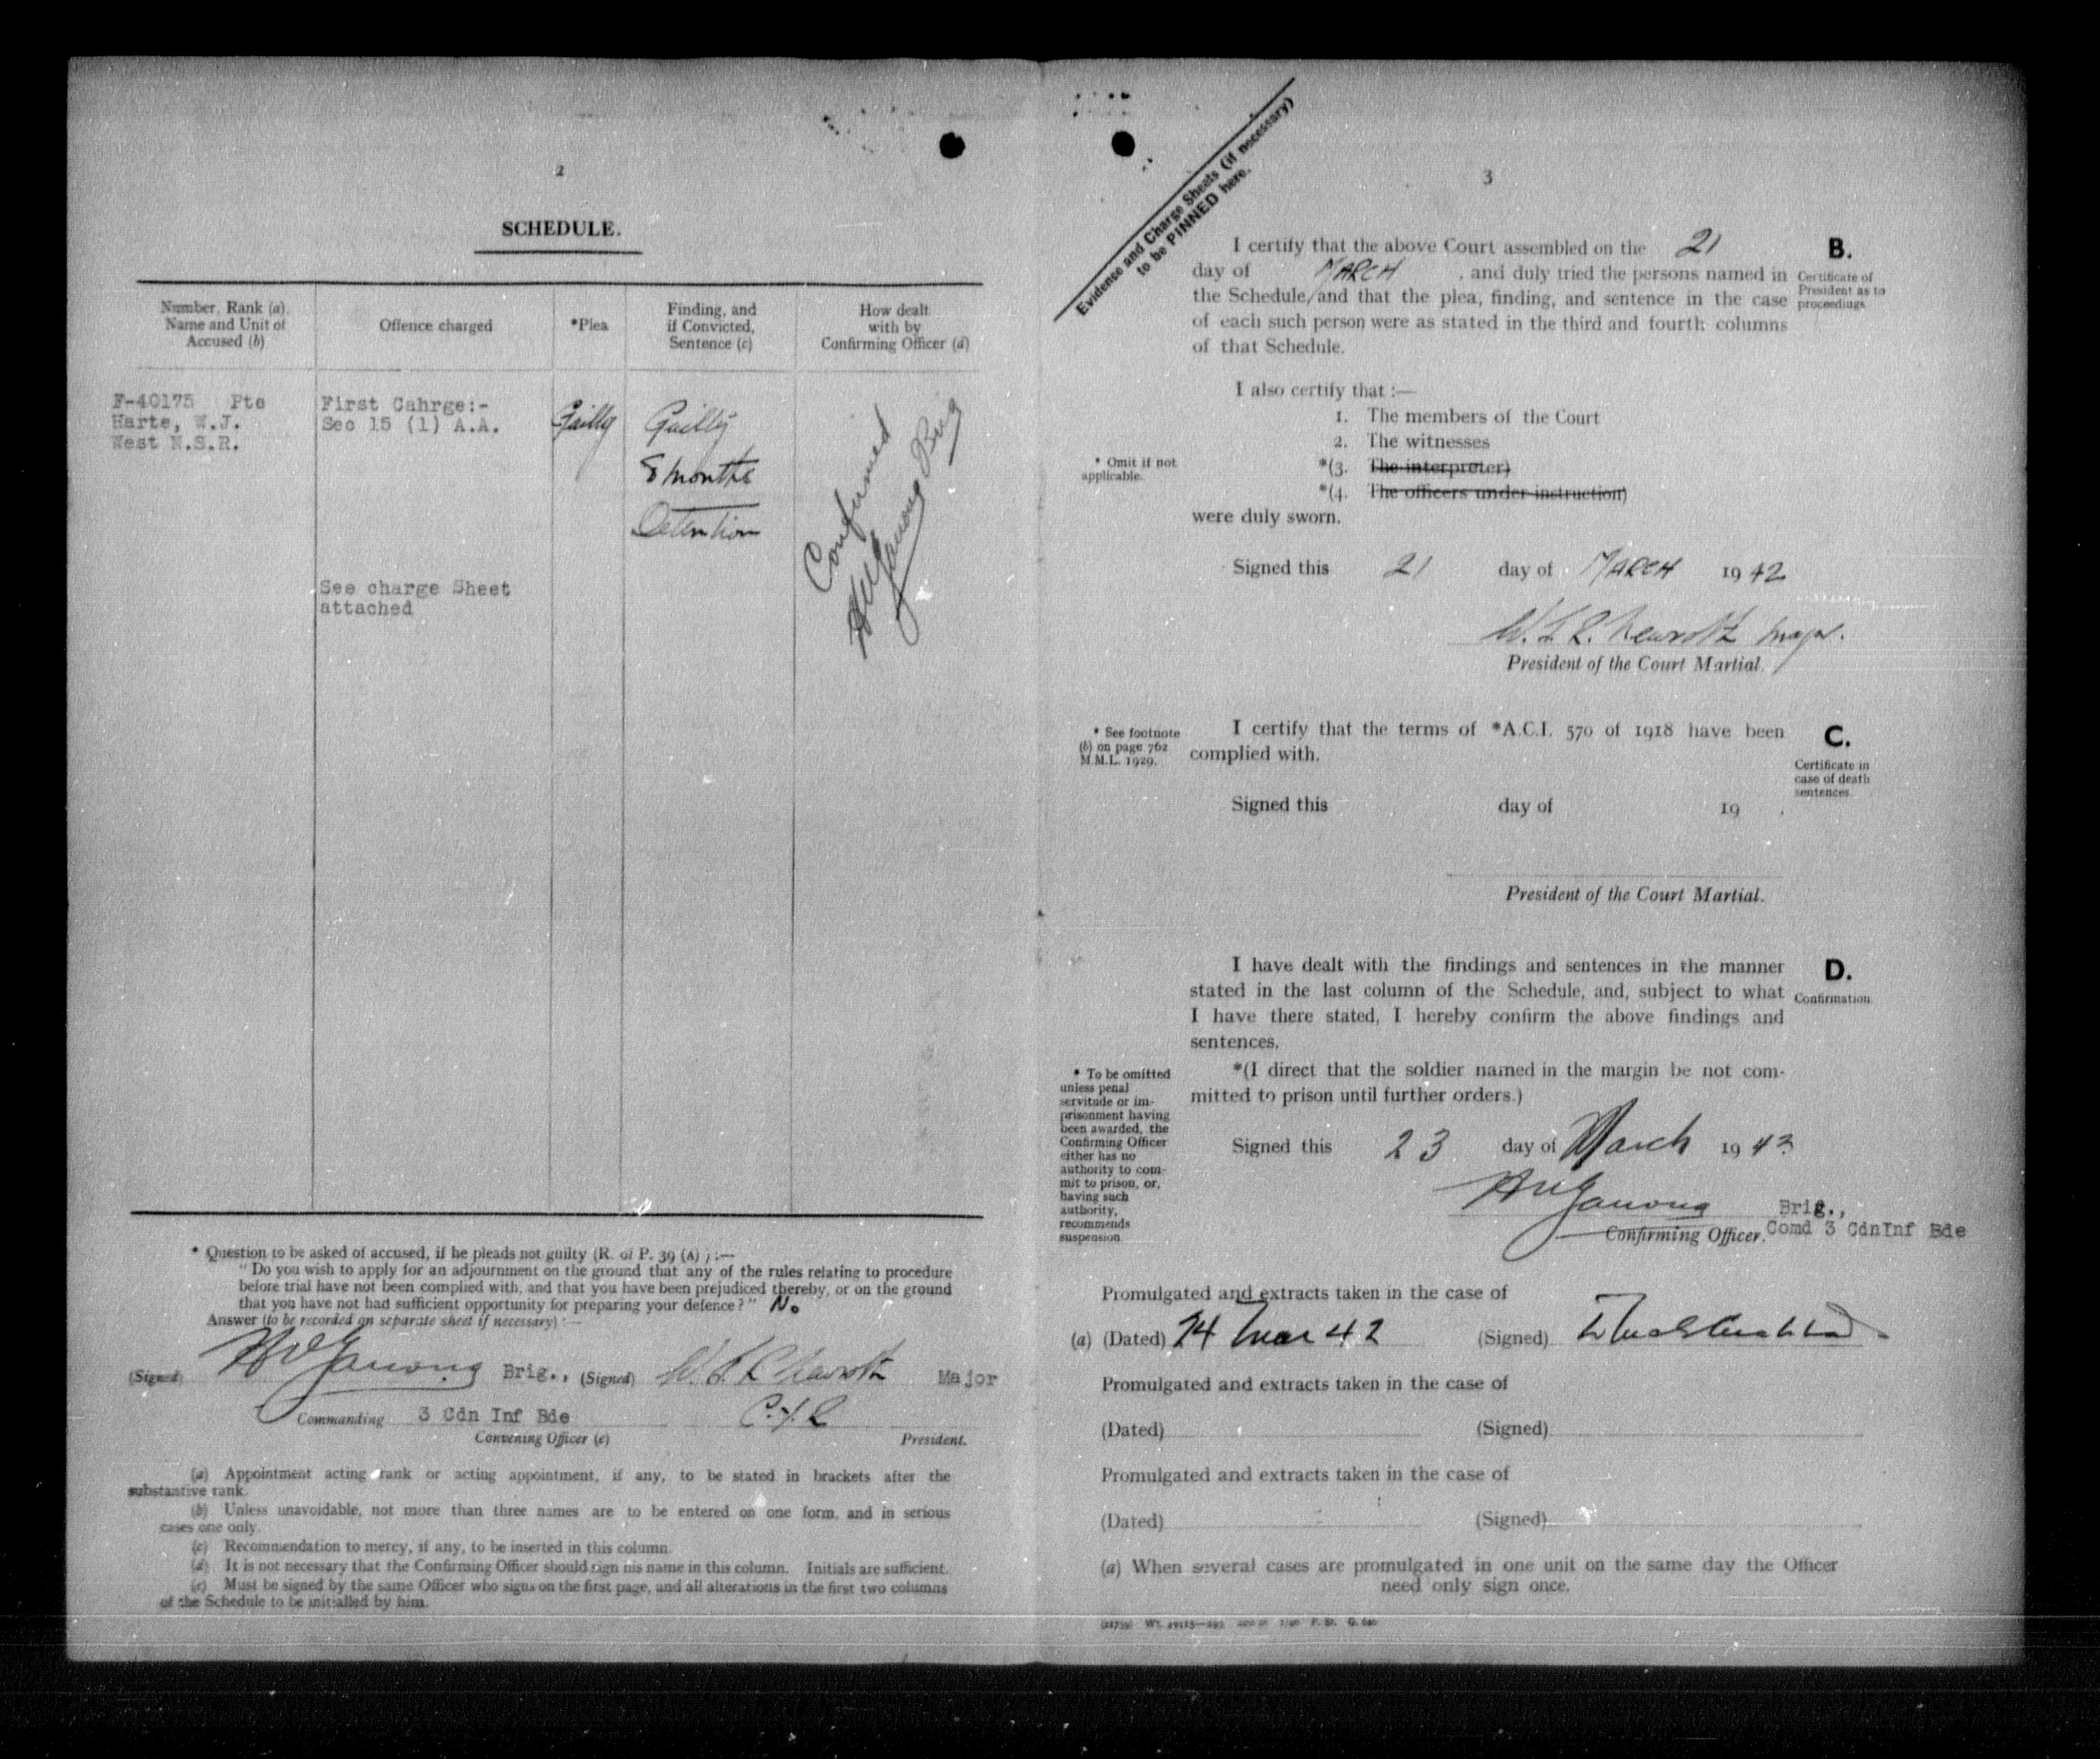 2
SCHEDULE.
Number, Rank (a).
Name and Unit of
Accused (b)
Offence charged
*Plea
Finding, and
if Convicted,
Sentence (c)
How dealt
with by
Confirming Officer (d)
F-40175 Pte
Harte, W.J.
West N.S.R.
First Cahrge:-
Sec 15 (1) A.A.
See charge Sheet
attached
Guilty
Guilty
8 months
Detention
Confirmed
Brig
* Question to be asked of accused, if he pleads not guilty (R. of P. 39 (A) ) :—
" Do you wish to apply for an adjournment on the ground that any of the rules relating to procedure
before trial have not been complied with, and that you have been prejudiced thereby, or on the ground
that you have not had sufficient opportunity for preparing your defence ? " No
Answer (to be recorded on separate sheet if necessary) :—
(Signed) Brig., (Signed) Major
Commanding 3 Cdn Inf Bde
Convening Officer (e) President.
(a) Appointment acting rank or acting appointment, if any, to be stated in brackets after the
substantive rank.
(b) Unless unavoidable, not more than three names are to be entered on one form, and in serious
cases one only.
(c) Recommendation to mercy, if any, to be inserted in this column.
(d) It is not necessary that the Confirming Officer should sign his name in this column. Initials are sufficient.
(e) Must be signed by the same Officer who signs on the first page, and all alterations in the first two columns
of the Schedule to be initialled by him.
Evidence and Charge Sheets (if necessary)
to be PINNED here.
3
I certify that the above Court assembled on the 21
day of MARCH , and duly tried the persons named in
the Schedule, and that the plea, finding, and sentence in the case
of each such person were as stated in the third and fourth columns
of that Schedule.
B.
Certificate of
President as to
proceedings.
I also certify that :—
1. The members of the Court
2. The witnesses
*(3. The interpreter)
*(4. The officers under instruction)
were duly sworn.
* Omit if not
applicable.
Signed this 21 day of MARCH 1942
Major.
President of the Court Martial.
* See footnote
(b) on page 762
M.M.L. 1929.
I certify that the terms of *A.C.I. 570 of 1918 have been
complied with.
C.
Certificate in
case of death
sentences.
Signed this day of 19 .
President of the Court Martial.
I have dealt with the findings and sentences in the manner
stated in the last column of the Schedule, and, subject to what
I have there stated, I hereby confirm the above findings and
sentences.
D.
Confirmation.
*(I direct that the soldier named in the margin be not com-
mitted to prison until further orders.)
* To be omitted
unless penal
servitude or im-
prisonment having
been awarded, the
Confirming Officer
either has no
authority to com-
mit to prison, or,
having such
authority,
recommends
suspension.
Signed this 23 day of March 1942
Brig.,
Confirming Officer. Comd 3 CdnInf Bde
Promulgated and extracts taken in the case of
(a) (Dated) 24 Mar 42 (Signed)
Promulgated and extracts taken in the case of
(Dated) (Signed)
Promulgated and extracts taken in the case of
(Dated) (Signed)
(a) When several cases are promulgated in one unit on the same day the Officer
need only sign once.